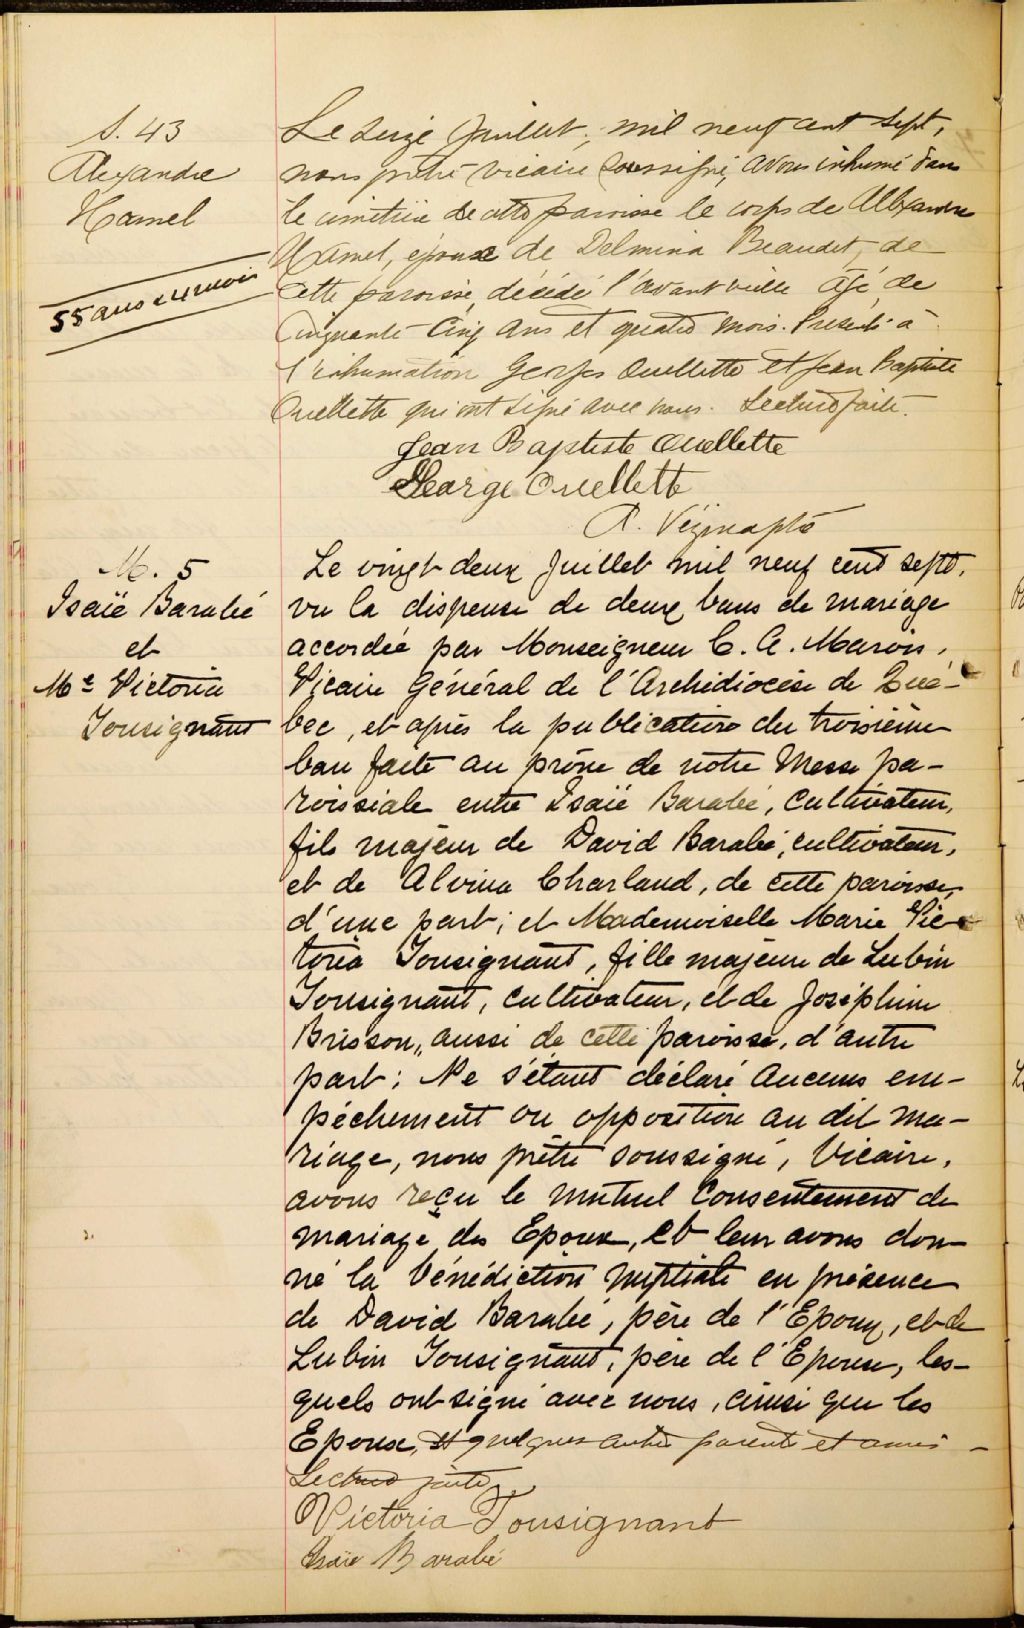 S. 43
Alexandre
Hamel
55 ans & 4 mois
Le seize Juillet, mil neuf cent sept,
nous prêtre vicaire soussigné, avons inhumé dans
le cimetière de cette paroisse le corps de Alexandre
Hamel, époux de Delmina Beaudet, de
cette paroisse, décédé l'avant veille âgé de
Cinquante Cinq ans et quatre mois. Présents à
l'inhumation Georges Ouellette et Jean Baptiste
Ouellette qui ont signé avec nous. Lecture faite.
Jean Baptiste Ouellette
George Ouellette
Vézina ptre
M. 5
Isaïe Barabé
et
Me Victoria
Tousignant
Le vingt deux Juillet mil neuf cent sept,
vu la dispense de deux bans de mariage
accordée par Monseigneur C. A. Marois,
Vicaire Général de l'Archidiocèse de Qué-
bec, et après la publication du troisième
ban faite au prône de notre Messe pa-
roissiale entre Isaïe Barabé, cultivateur,
fils majeur de David Barabé, cultivateur,
et de Alvina Charland, de cette paroisse,
d'une part; et Mademoiselle Marie Vic-
toria Tousignant, fille majeure de Lubin
Tousignant, cultivateur, et de Joséphine
Brisson, aussi de cette paroisse, d'autre
part; Ne s'étant déclaré aucun em-
pêchement ou opposition au dit ma-
riage, nous prêtre soussigné, Vicaire,
avons reçu le mutuel consentement de
mariage des Epoux, et leur avons don-
né la bénédiction nuptiale en présence
de David Barabé, père de l'Epoux, et de
Lubin Tousignant, père de l'Epouse, les-
quels ont signé avec nous, ainsi que les
Epoux, et quelques autres parents et amis -
Lecture faite
Victoria Tousignant
Isaïe Barabé